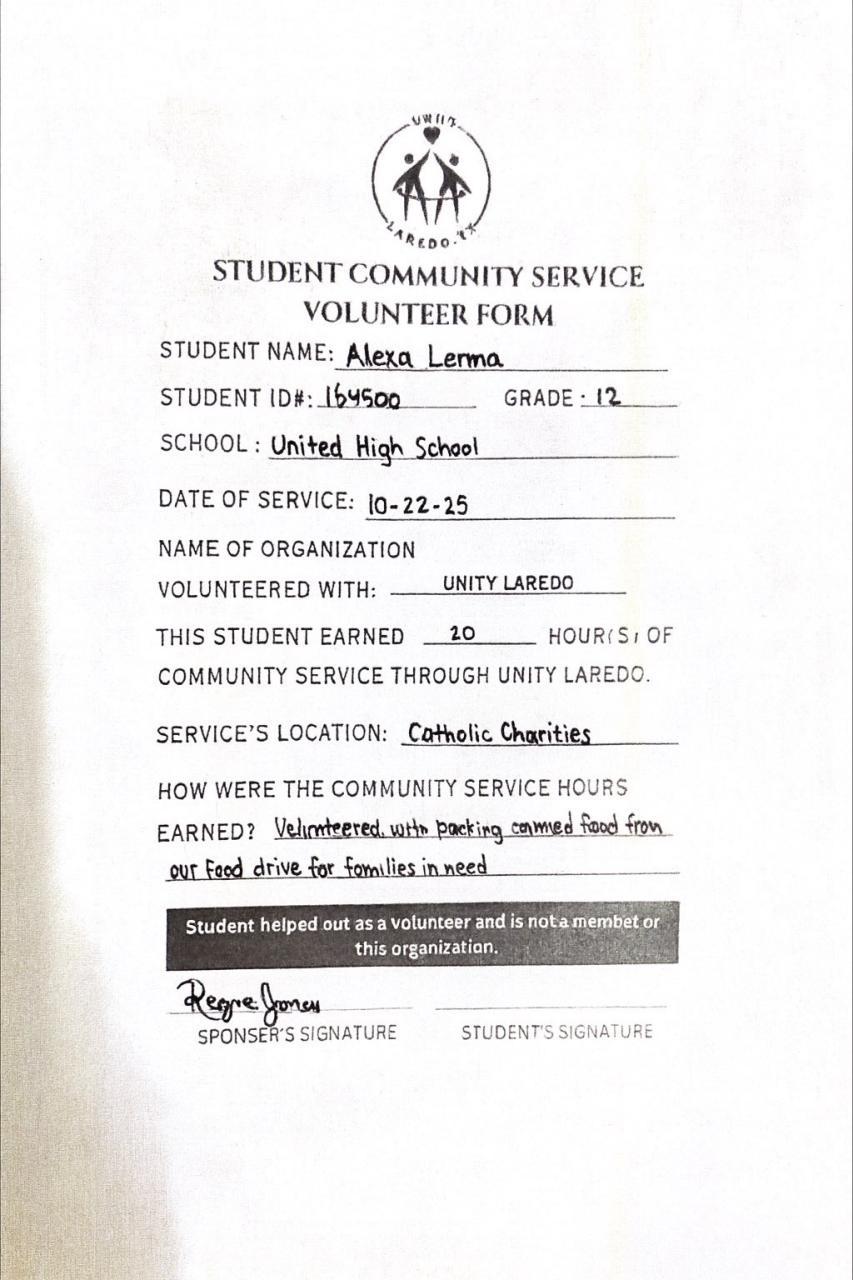 UNITY
LAREDO, TX
STUDENT COMMUNITY SERVICE
VOLUNTEER FORM
STUDENT NAME: Alexa Lerma
STUDENT ID#: 164500 GRADE: 12
SCHOOL: United High School
DATE OF SERVICE: 10-22-25
NAME OF ORGANIZATION
VOLUNTEERED WITH: UNITY LAREDO
THIS STUDENT EARNED 20 HOUR(S) OF
COMMUNITY SERVICE THROUGH UNITY LAREDO.
SERVICE'S LOCATION: Catholic Charities
HOW WERE THE COMMUNITY SERVICE HOURS
EARNED? Volunteered with packing canned food from
our Food drive for families in need
Student helped out as a volunteer and is not a member or
this organization.
SPONSER'S SIGNATURE STUDENT'S SIGNATURE